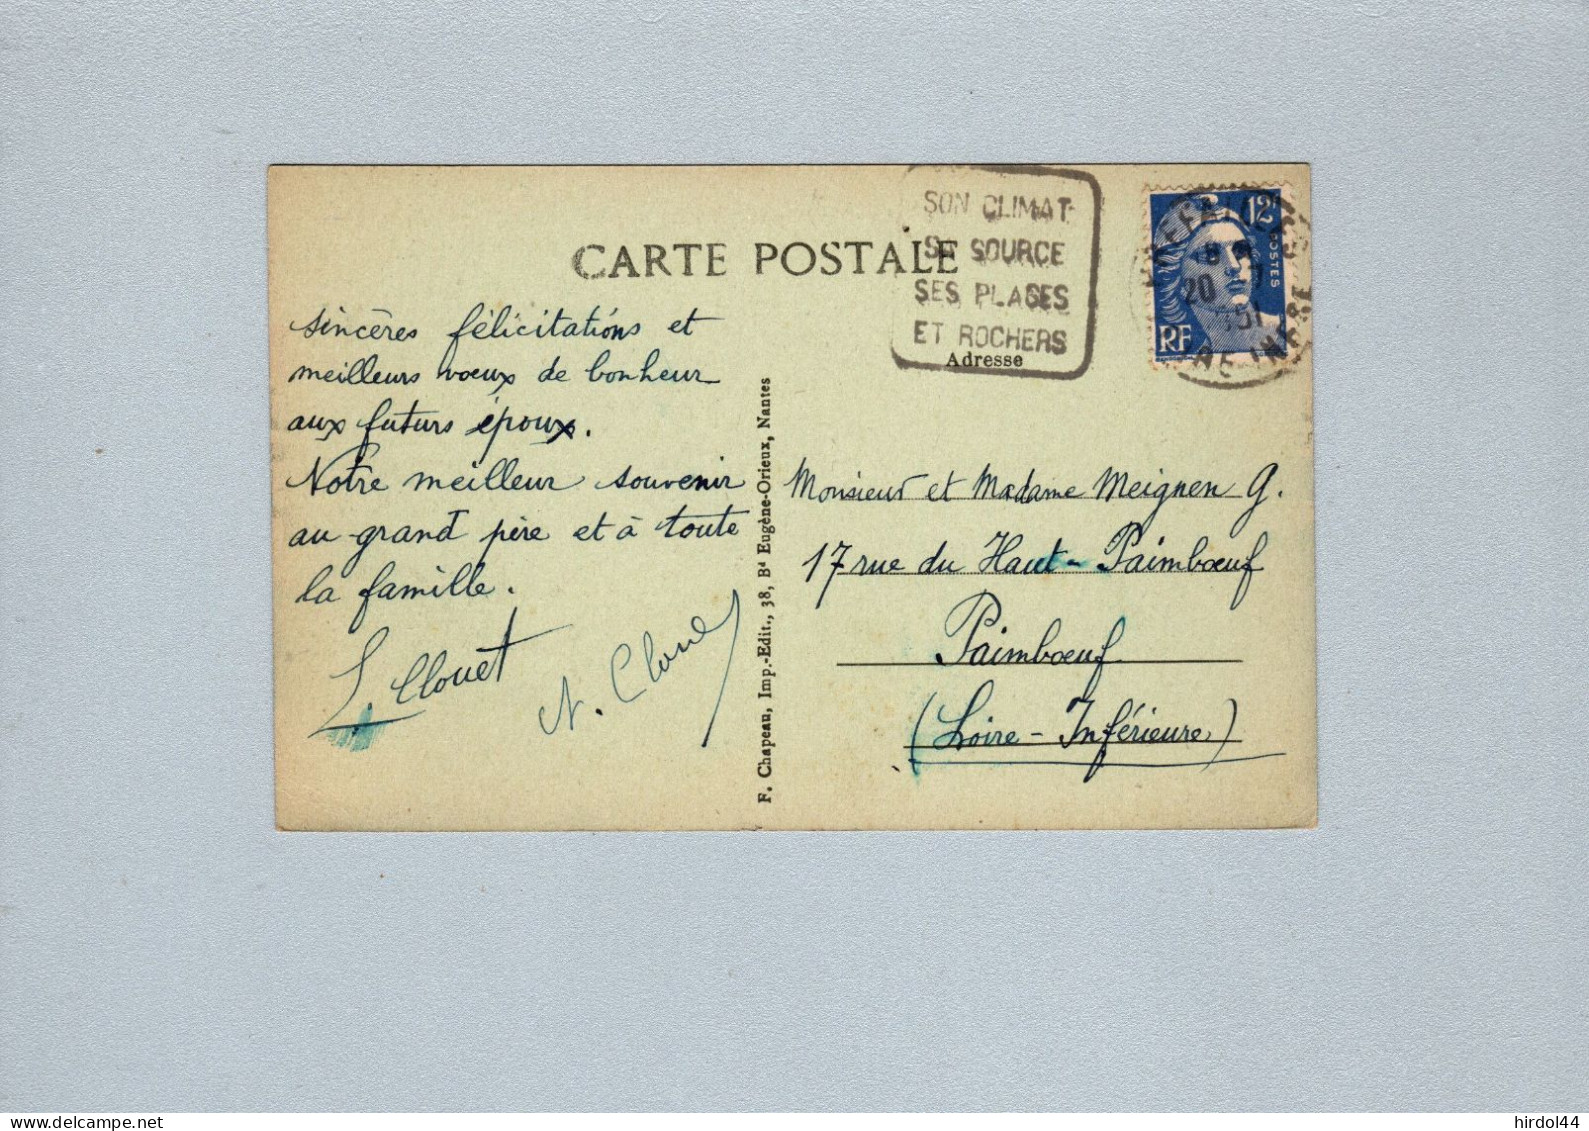 CARTE POSTALE
SON CLIMAT
SA SOURCE
SES PLAGES
ET ROCHERS
Adresse
12F
POSTES
RF
20
sincères félicitations et
meilleurs voeux de bonheur
aux futurs époux.
Notre meilleur souvenir
au grand père et à toute
la famille.
L. Clouet
N. Clouet
F. Chapeau, Imp.-Edit., 38, Bd Eugène-Orieux, Nantes
Monsieur et Madame Meignen G.
17 rue du Haut-Paimbœuf
Paimbœuf
(Loire-Inférieure)
hirdol44